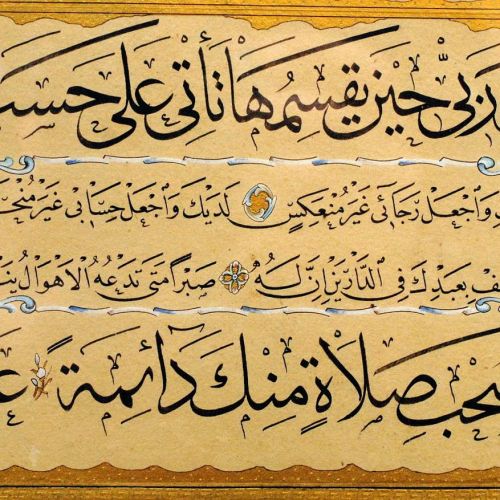 رَبِّي حِينَ يَقْسِمُهَا تَأْتِي عَلَى حَسَبِ
وَاجْعَلْ رَجَائِي غَيْرَ مُنْعَكِسٍ لَدَيْكَ وَاجْعَلْ حِسَابِي غَيْرَ
بِعَبْدِكَ فِي الدَّارَيْنِ اِنَّ لَهُ صَبْرًا مَتَى تَدْعُهُ الْاَهْوَالُ
صَلَاةٍ مِنْكَ دَائِمَةً